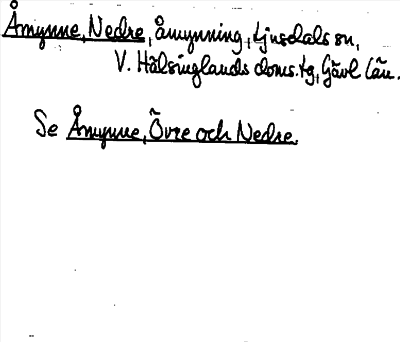 Åmynne, Nedre, åmynning, Ljusdals sn,
V. Hälsinglands doms.tg, Gävl län.
Se Åmynne, Övre och Nedre.